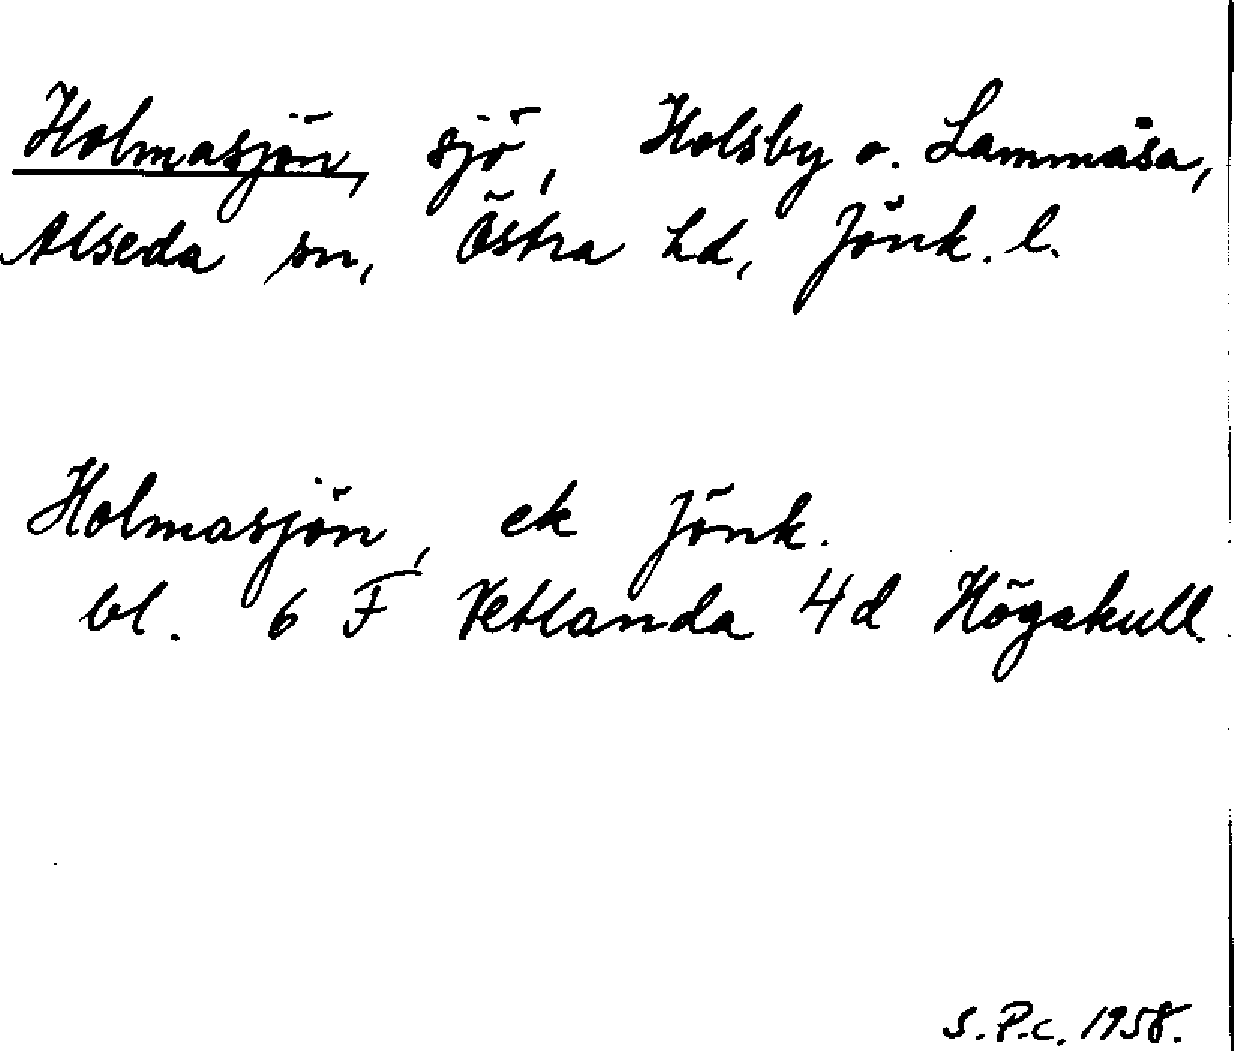 Holmasjön, sjö, Holsby o. Lammåsa,
Alseda sn, Östra hd, Jönk. l.
Holmasjön, ek Jönk.
bl. 6 F Vetlanda 4d Högakull.
S.P.c. 1958.